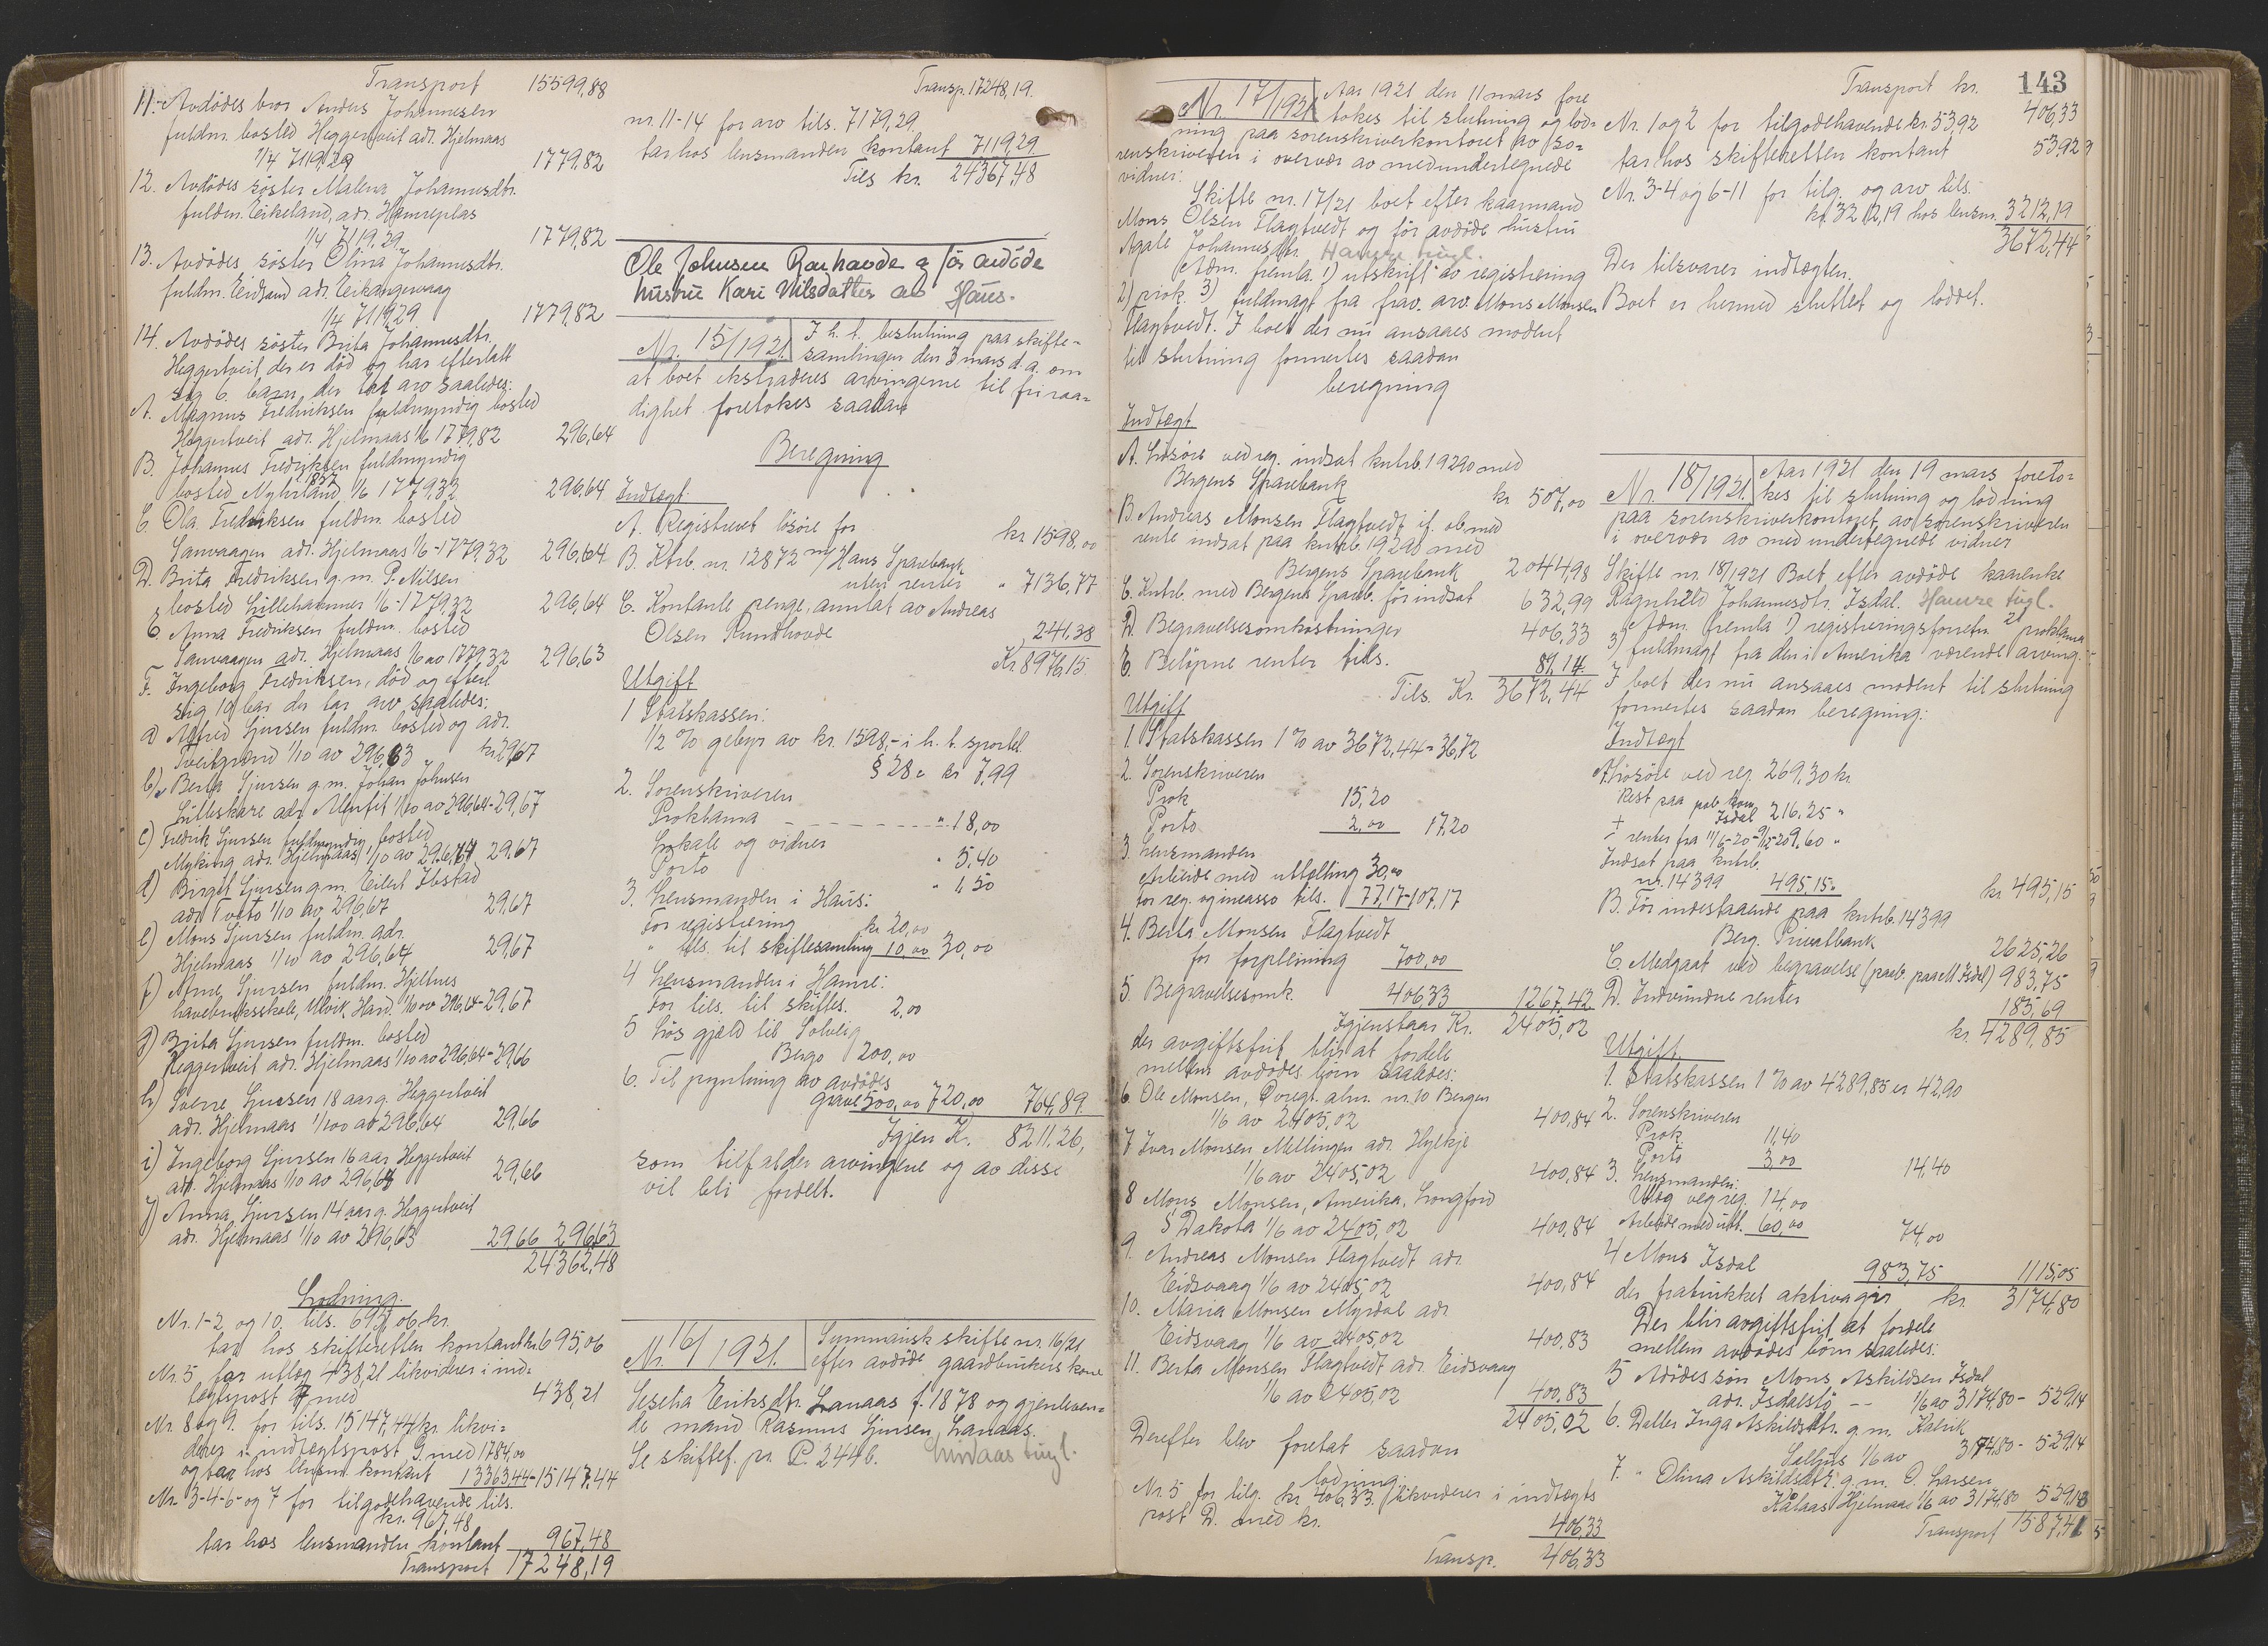 Transport 15599,88
11. Avdödes bror Anders Johannesen
fuldm. bosted Heggertveit adr. Hjelmaas
1/4 7119,29 1779,82
12. Avdödes söster Malena Johannesdtr.
fuldm. Eikeland, adr. Hamreplas
1/4 7119,29 1779,82
13. Avdödes söster Olina Johannesdtr.
fuldm. Eidsand adr. Eikangervaag
1/4 7119,29 1779,82
14. Avdödes söster Brita Johannesdtr.
Heggertveit, der er död og har efterlatt
sig 6. barn, der tar arv saaledes:
A. Magnus Fredriksen fuldmyndig bosted
Heggertveit adr. Hjelmaas 1/6 1779,82 296,64
B. Johannes Fredriksen fuldmyndig
bosted Nyhrland, 1/6 1779,32 296,64
C. Ola Fredriksen fuldm. bosted
Sanvaagen adr. Hjelmaas 1/6 - 1779,32 296,64
D. Brita Fredriksen g.m. P. Nilsen
bosted Lillehammer 1/6 - 1779,32 296,64
E. Anna Fredriksen fuldm. bosted
Sanvaagen adr. Hjelmaas 1/6 av 1779,32 296,63
F. Ingeborg Fredriksen, död og efterl.
sig 10 bar der tar arv saaledes:
a) Alfred Sjursen fuldm. bosted og adr.
Tveitgrend 1/10 av 296,63 kr. 29,67
b) Berta Sjursen g.m. Johan Johnsen
Lilleskare adr. Alenfit 1/10 av 296,64 - 29,67
c) Fredrik Sjursen fuldmyndig bosted
Myking adr. Hjelmaas 1/10 av 296,64 29,67
d) Birgit Sjursen g.m. Eilert Ibstad
adr. Tveito 1/10 av 296,67 29,67
e) Mons Sjursen fuldm. adr.
Hjelmaas 1/10 av 296,64 29,67
f) Arne Sjursen fuldm. Hjeltnes
havebruksskole, Ulvik, Hard. 1/10 av 296,64 - 29,67
g) Brita Sjursen fuldm. bosted
Heggertveit adr. Hjelmaas 1/10 av 296,64 - 29,66
h) Sverre Sjursen 18 aar g. Heggertveit
adr. Hjelmaas 1/10 av 296,64 29,66
i) Ingeborg Sjursen 16 aar Heggertveit
adr. Hjelmaas 1/10 av 296,64 29,66
j) Anna Sjursen 14 aar g. Heggertveit
adr. Hjelmaas 1/10 av 296,63 29,66 296,63
24362,48
Lodning.
Nr. 1-2 og 10. tils. 695,06 kr.
tar hos skifteretten kontant kr. 695,06
Nr. 5 for utlæg 438,21 likvideres i ind-
tægtspost F med 438,21
Nr. 8 og 9. for tils. 15147,44 kr. likvi-
deres i indtægtspost G med 1784,00
og tar hos lensm. kontant 13363,44 - 15147,44
Nr. 3-4-6- og 7 for tilgodehavende tils.
kr. 967,48
tar hos lensmanden kontant 967,48
Transport 17248,19
Transp. 17248,19.
nr. 11-14 for arv tils. 7179,29
tar hos lensmanden kontant 7119,29
Tils kr. 24367,48
Ole Johnsen Ronhovde og för avdöde
hustru Kari Nilsdatter av Haus.
Nr. 15/1921. I h. t. beslutning paa skifte-
samlingen den 3 mars d.a. om
at boet ekstraderes arvingerne til fri raa-
dighet foretokes saadan
Beregning
Indtægt.
A. Registreret lösöre for kr 1598,00
B. Ktrb. nr. 12872 m/ Haus Sparebank
uten renter " 7136,77
C. Kontante penge, anmelt av Andreas
Olsen Rundhovde 241,38
Kr. 8976,15
Utgift
1 Statskassen:
1/2 % gebyr av kr. 1598,- i h. t. sportel.
§ 28 = kr 7,99
2. Sorenskriveren
Proklama " 18,00
Lokale og vidner " 5,40
Porto " 1,50
3. Lensmanden i Haus:
For registrering kr. 20,00
" tils. til skiftesamling 10,00 30,00
4 Lensmanden i Hamre:
For tils. til skiftes. 2,00
5 Lös gjæld til Solveig
Bergo 200,00
6. Til pyntning av avdödes
grave 500,00 720,00 764,89
Igjen K. 8211,26,
som tilfalder arvingerne og av disse
vil bli fordelt.
Nr. 16/1921. Summarisk skifte nr. 16/21
efter avdöde gaardbrukers kone
Seselia Eriksdtr. Lanaas f. 1878 og gjenleven-
de mand Rasmus Sjursen, Lanaas.
Se skiftef. pr. P. 244 b. Lindaas tingl.
143
Nr. 17/1921 Aar 1921 den 11 mars fore
tokes til slutning og lod-
ning paa sorenskriverkontoret av so-
renskriveren i overvær av medundertegnede
vidner:
Skifte nr. 17/21 boet efter kaarmand
Mons Olsen Flagtvedt og för avdöde hustru
Agate Johannesdtr. Hamre tingl.
Adm. fremla. 1) utskrift av registrering
2) prok. 3) fuldmagt fra frav. arv. Mons Monsen
Flagtvedt. I boet der nu ansaaes modent
til slutning formertes saadan
beregning
Indtægt
A. Lösöre ved reg. indsat kntrb. 19290 med
Bergens Sparebank kr 507,00
B. Andreas Monsen Flagtvedt if. ob. med
rente indsat paa kntrb. 19290 med
Bergens Sparebank 2044,98
C. Kntrb. med Bergens Spareb. för indsat 632,99
D. Begravelsesomkostninger 406,33
E. Belöpne renter tils. 81,14
Tils. Kr. 3672,44
Utgift
1. Statskassen 1 % av 3672,44 = 36,72
2. Sorenskriveren
Prok 15,20
Porto 2,00 17,20
3. Lensmanden
Arbeide med uttælling 30,00
for reg. og incasso tils. 77,17 - 107,17
4. Berta Monsen Flagtvedt
for forpleining 700,00
5. Begravelsesomk. 406,33 1267,42
Igjenstaar Kr. 2405,02
der avgiftsfrit blir at fordele
mellem avdödes börn saaledes:
6 Ole Monsen, Øvregt. alm. nr. 10 Bergen
1/6 av 2405,02 400,84
7 Ivar Monsen Mellingen adr. Hylkje
1/6 av 2405,02 400,84
8 Mons Monsen, Amerika. Longford
S. Dakota 1/6 av 2405,02 400,84
9. Andreas Monsen Flagtvedt adr.
Eidsvaag 1/6 av 2405,02 400,84
10. Maria Monsen Myrdal adr.
Eidsvaag 1/6 av 2405,02 400,83
11. Berta Monsen Flagtvedt adr. Eidsvaag
1/6 av 2405,02 400,83
2405,02
Derefter blev foretat saadan
lodning.
Nr. 5 for tilg. kr 406,33. likvideres i indtægts
post D. med kr. 406,33
Transp. 406,33
Transport kr. 406,33
Nr. 1 og 2 for tilgodehavende kr. 53,92
tar hos skifteretten kontant 53,92
Nr. 3-4 og 6-11 for tilg. og arv tils.
kr. 3212,19 hos lensm. 3212,19
3672,44
Der tilsvarer indtægten.
Boet er hermed sluttet og loddet.
Nr. 18/1921. Aar 1921 den 19 mars foreto-
kes til slutning og lodning
paa sorenskriverkontoret av sorenskriveren
i overvær av medundertegnede vidner
Skifte nr. 18/1921 Boet efter avdöde kaarenke
Ragnhild Johannesdtr. Isdal. Hamre tingl.
Adm. fremla 1) registreringsforretn. 2) proklama
3) fuldmagt fra den i Amerika værende arving.
I boet der nu ansaaes modent til slutning
formertes saadan beregning:
Indtægt
A. Lösöre ved reg. 269,30 kr
Rest paa
Isdal 216,25 "
+ renter fra 11/6-20 - 9/12-20 9,60 "
Indsat paa kntrb.
nr. 14399 495,15. kr 495,15
B. För indestaaende paa kntrb. 14399
Berg. Privatbank 2625,26
C. Medgaat ved begravelse (paab. paa M. Isdal) 983,75
D. Indvundne renter 185,69
kr. 4289,85
Utgift.
1. Statskassen 1 % av 4289,85 er 42,90
2. Sorenskriveren
Prok. 11,40
Porto 3,00 14,40
3. Lensmanden:
Utlæg ved reg. 14,00
Arbeide med utt. 60,00 74,00
4 Mons Isdal 983,75 1115,05
der fratrukket aktiva gjör kr. 3174,80
Der blir avgiftsfrit at fordele
mellem avdödes börn saaledes:
5 Avdödes sön Mons Askildsen Isdal
adr. Isdalstö -- 1/6 av 3174,80 - 529,14
6. Datter Inga Askildsdtr. g.m. Kalrik
1/6 av 3174,80 - 529,14
7. " Olina Askildsdtr. g.m. O. Larsen
Kålaas Hjelmaas 1/6 av 3174,80 529,13
Transport 1587,41